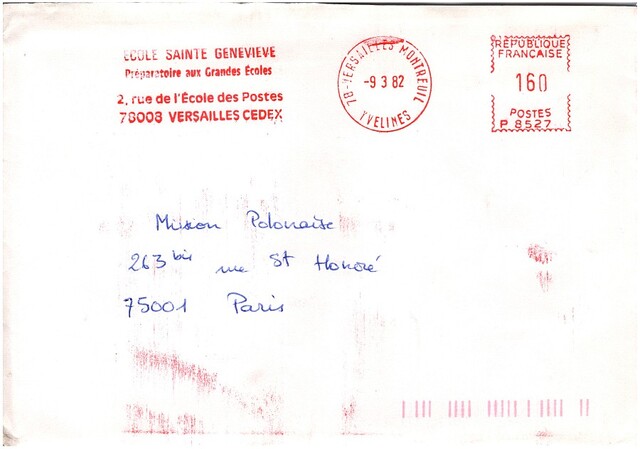 ECOLE SAINTE GENEVIEVE
Préparatoire aux Grandes Écoles
2, rue de l'École des Postes
78008 VERSAILLES CEDEX
78-VERSAILLES MONTREUIL
-9 3 82
YVELINES
RÉPUBLIQUE
FRANÇAISE
160
POSTES
P 8527
Mission Polonaise
263 bis rue St Honoré
75001 Paris